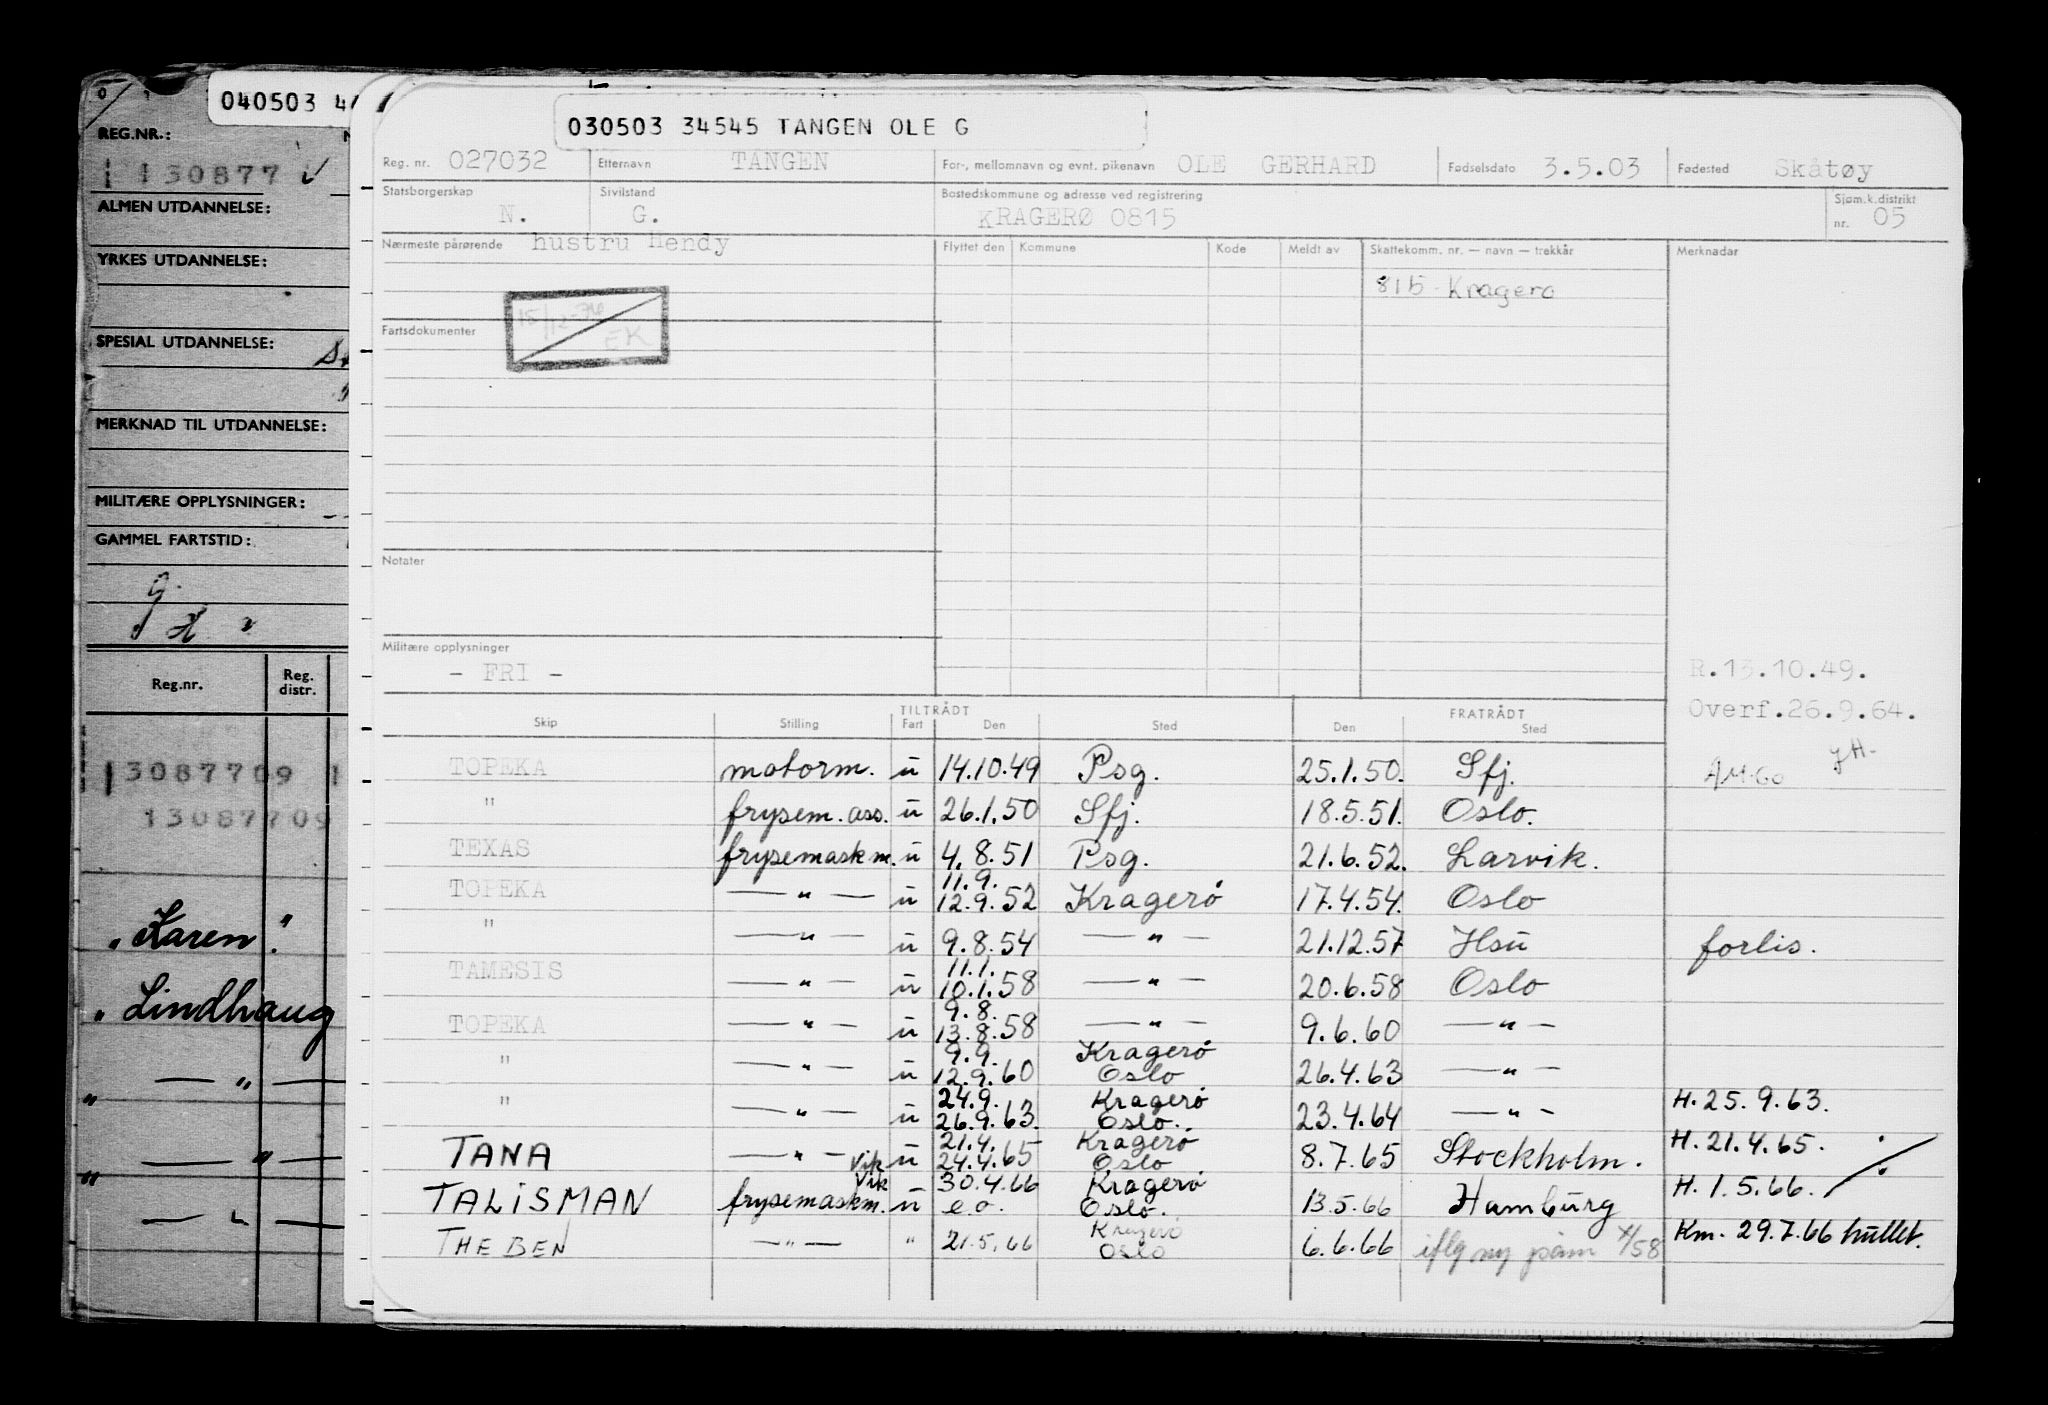 040503 4
REG.NR.:
130877
ALMEN UTDANNELSE:
YRKES UTDANNELSE:
SPESIAL UTDANNELSE:
MERKNAD TIL UTDANNELSE:
MILITÆRE OPPLYSNINGER:
GAMMEL FARTSTID:
Reg.nr. Reg. distr.
13087709 1
13087709
„ Karen "
„ Lindhaug
„ — " —
„ — " —
— " —
030503 34545 TANGEN OLE G
Reg. nr. 027032 Etternavn TANGEN For-, mellomnavn og evnt. pikenavn OLE GERHARD Fødselsdato 3.5.03 Fødested Skåtøy
Statsborgerskap N. Sivilstand G. Bostedskommune og adresse ved registrering KRAGERØ 0815 Sjøm.k.distrikt nr. 05
Nærmeste pårørende hustru Hendy Flyttet den Kommune Kode Meldt av Skattekomm. nr. — navn — trekkår Merknadar
815 Kragerø
Fartsdokumenter 15/12-76 EK
Notater
Militære opplysninger
- FRI -
R.13.10.49.
Overf.26.9.64.
TILTRÅDT FRATRÅDT
Skip Stilling Fart Den Sted Den Sted
TOPEKA motorm. u 14.10.49 Psg. 25.1.50. Sfj.
" frysem. ass. u 26.1.50 Sfj. 18.5.51. Oslo.
TEXAS frysemaskm. u 4.8.51 Psg. 21.6.52. Larvik.
11.9.
TOPEKA — " — u 12.9.52 Kragerø 17.4.54. Oslo
" — " — u 9.8.54 — " — 21.12.57 Hsu forlis.
11.1.
TAMESIS — " — u 10.1.58 — " — 20.6.58 Oslo
9.8.
TOPEKA — " — u 13.8.58 — " — 9.6.60 — " —
9.9. Kragerø
" — " — u 12.9.60 Oslo 26.4.63 — " —
24.9. Kragerø H. 25.9.63.
" — " — u 26.9.63. Oslo. 23.4.64 — " —
21.4. Kragerø H. 21.4.65.
TANA — " — Vik u 24.4.65 Oslo 8.7.65 Stockholm.
Vik 30.4.66 Kragerø H. 1.5.66.
TALISMAN frysemaskm. u e.o. Oslo. 13.5.66 Hamburg
Kragerø Km. 29.7.66 hullet.
THEBEN — " — " 21.5.66 Oslo 6.6.66 iflg ny X/58